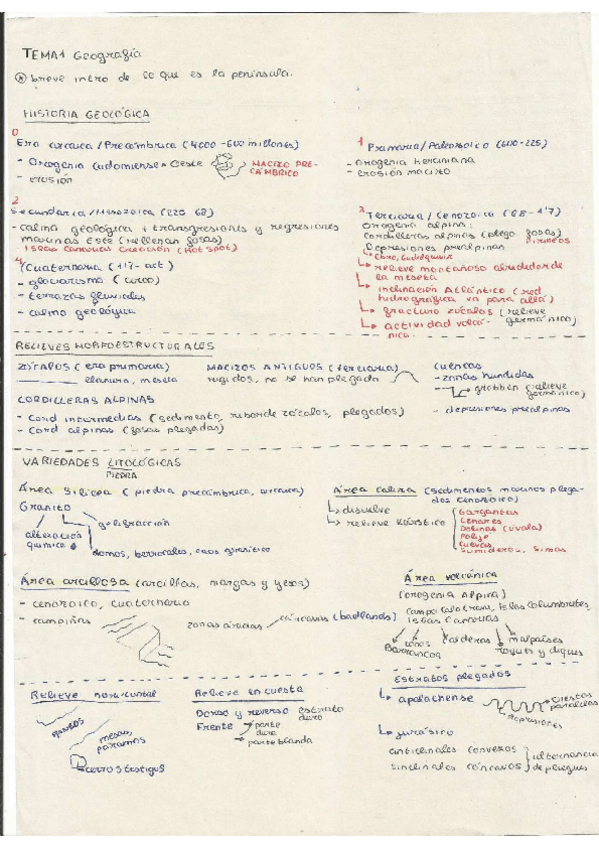 TEMA 1 Geografía
* breve intro de lo que es la península.
HISTORIA GEOLÓGICA
0
Era arcaica / Precámbrica (4000 - 600 millones)
- Orogenia cadomiense = Oeste
MACIZO PRE-
CÁMBRICO
- erosión
1 Primaria / Paleozoico (600-225)
- orogenia herciniana
- erosión macizo
2
Secundaria / Mesozoica (225-68)
- calma geológica + transgresiones y regresiones
marinas este (rellenan fosas)
Islas Canarias creación (Hot Spot)
3 Terciaria / Cenozoico (68 - 1'7)
Orogenia alpina:
Cordilleras alpinas (pliego fosas)
Pirineos
Depresiones prealpinas
Ebro, Guadalquivir
relieve montañoso alrededor de
la meseta
inclinación Atlántico (red
hidrográfica va para allá)
fractura zócalos (relieve
germánico)
actividad volcá-
nica.
4
Cuaternaria (1'7 - act)
- glaciarismo (circo)
- terrazas fluviales
- calma geológica
RELIEVES MORFOESTRUCTURALES
ZÓCALOS (era primaria)
llanura, meseta
MACIZOS ANTIGUOS (terciaria)
rígidos, no se han plegado
cuencas
- zonas hundidas
grabben (relieve
germánico)
- depresiones prealpinas
CORDILLERAS ALPINAS
- Cord intermedias (sedimento, reborde zócalos, plegados)
- Cord alpinas (fosas plegadas)
VARIEDADES LITOLÓGICAS
PIEDRA
Área Silícea (piedra precámbrica, arcaica)
Granito
alteración
química
gelifracción
domos, berrocales, caos granítico
Área caliza (sedimentos marinos plega-
dos cenozoico)
disuelve
relieve kárstico
Gargantas
Lenares
Dolinas (uvala)
Polije
Cuevas
Sumideros, Simas
Área arcillosa (arcillas, margas y yesos)
- cenozoico, cuaternario
- campiñas
zonas áridas
cárcavas (badlands)
Área volcánica
(orogenia Alpina)
Campo Calatrava, Islas Columbretes,
Islas Canarias
conos
Barrancos
Calderas
malpaíses
roques y diques
Relieve horizontal
páramos
cerros testigos
Relieve en cuesta
Dorso y reverso estrato
duro
Frente
parte
dura
parte blanda
Estratos plegados
apalachense
crestas
paralelas
depresiones
jurásico
anticlinales convexos
sinclinales cóncavos
alternancia
de pliegues